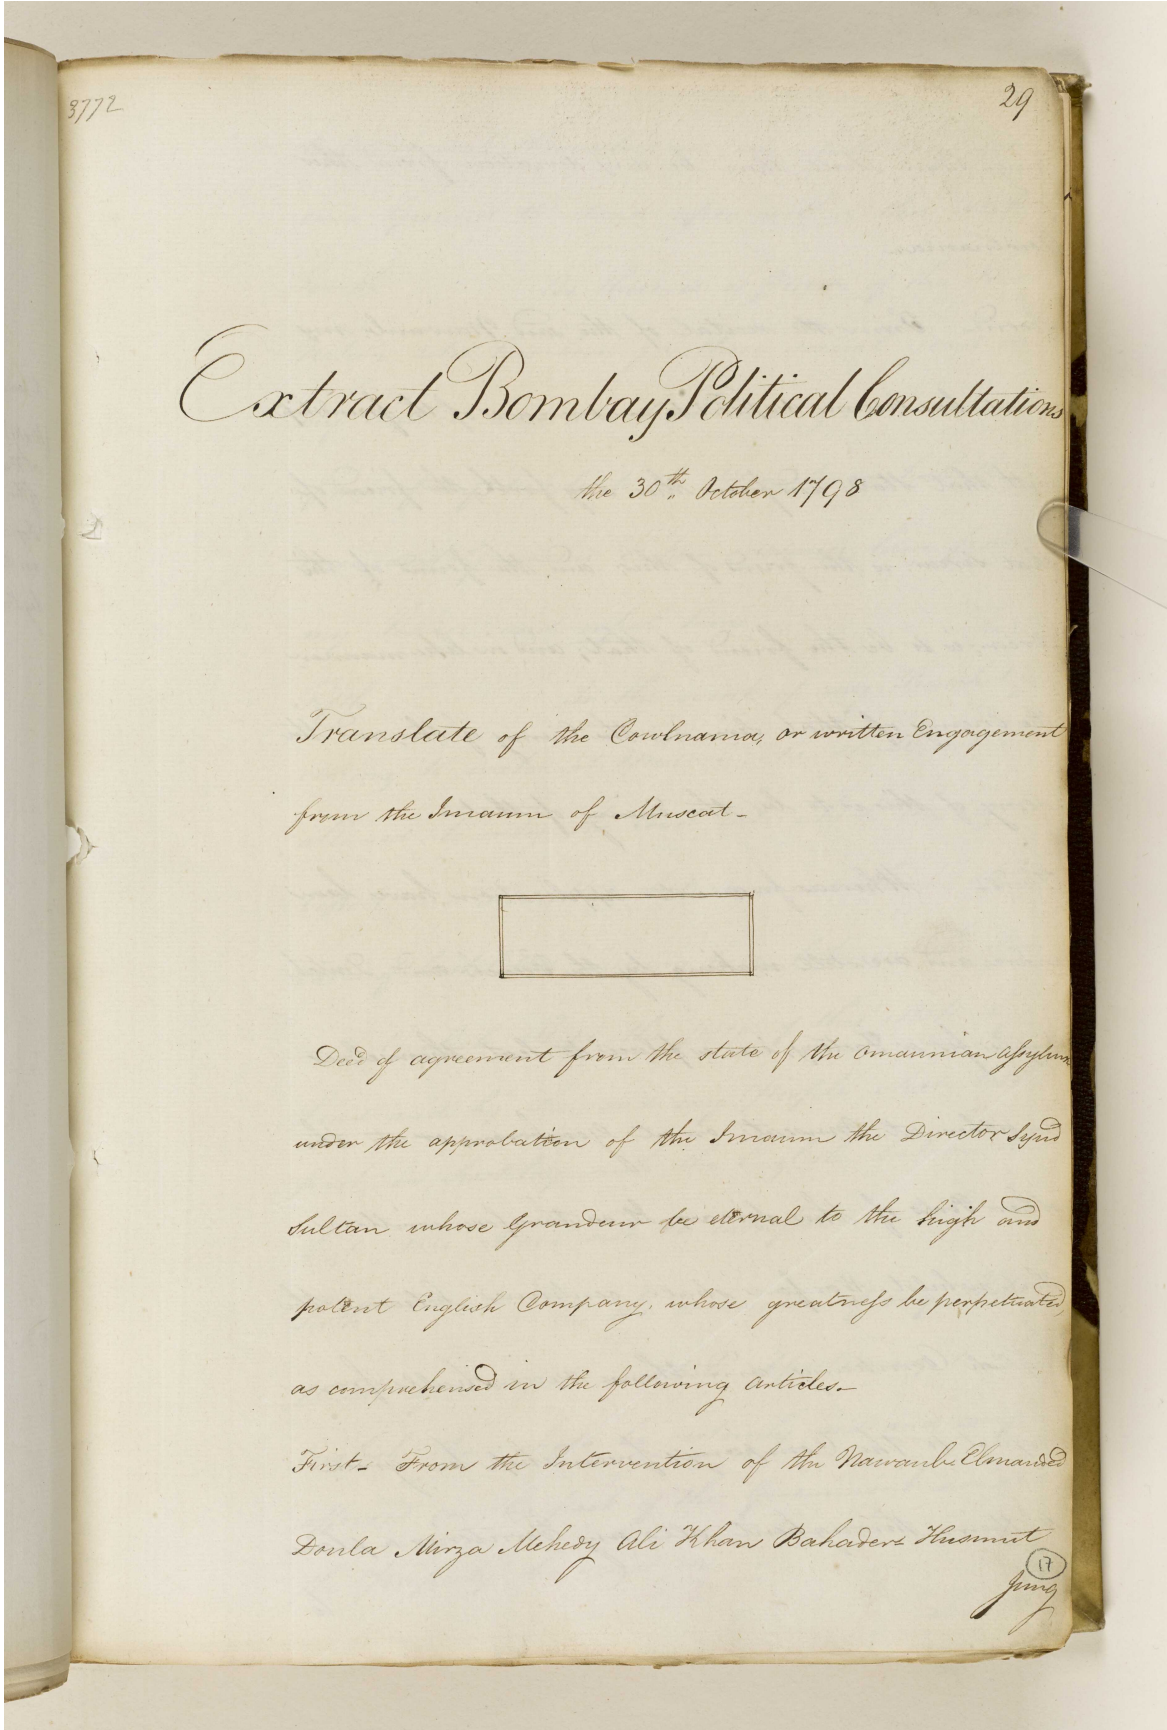 3772
29
Extract Bombay Political Consultations
the 30th October 1798
Translate of the Cowlnama, or written Engagement
from the Imaum of Muscat-
Deed of agreement from the state of the Omaunian Assylum
under the approbation of the Imaum the Director Syud
Sultan whose Grandeur be eternal to the high and
potent English Company, whose greatness be perpetuated,
as comprehensed in the following articles-
First- From the Intervention of the Nawaub Elmauded
Doula Mirza Mehedy Ali Khan Bahader Husmut
17
Jung